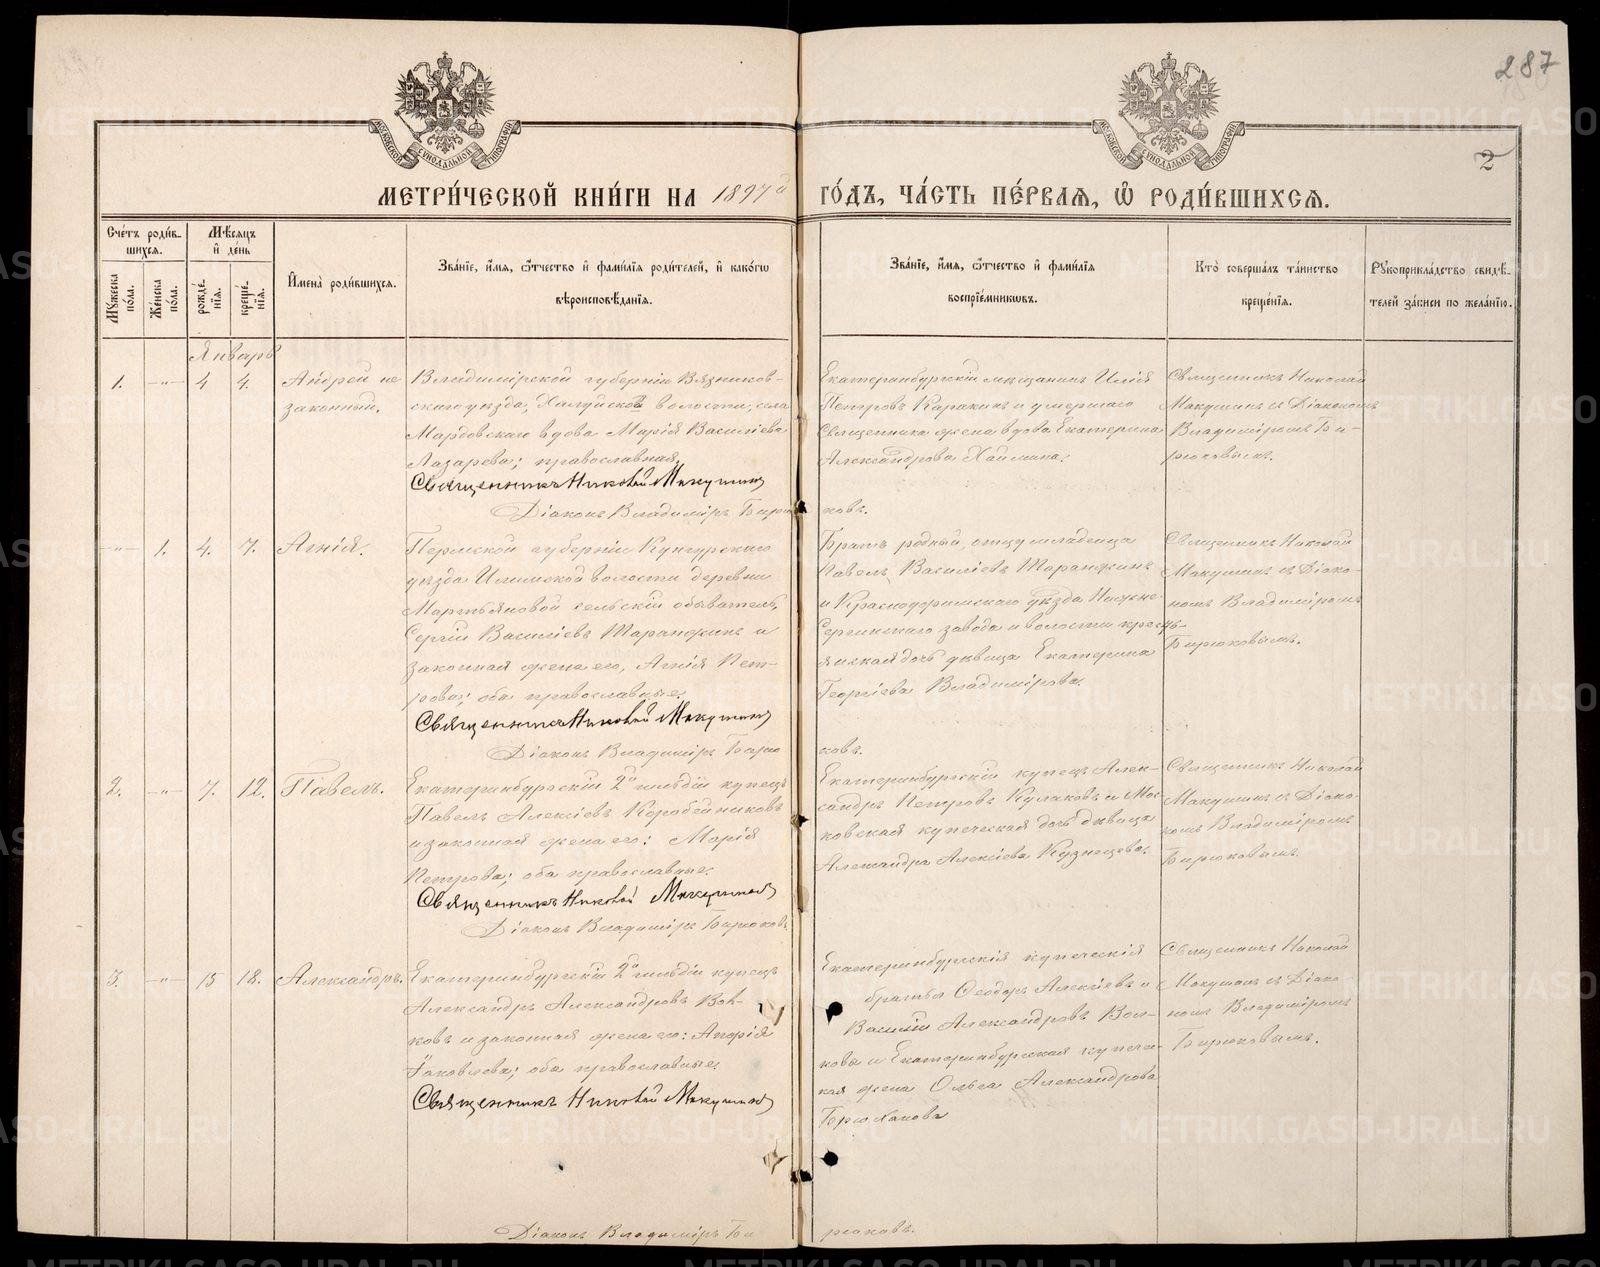 287
2
МОСКОВСКОЙ СУНОДАЛЬНОЙ ТИПОГРАФІИ
МОСКОВСКОЙ СУНОДАЛЬНОЙ ТИПОГРАФІИ
МЕТРИ́ЧЕСКОЙ КНИ́ГИ НА 1897й ГО́ДЪ, ЧА́СТЬ ПЕ́РВАѦ, Ѡ҆ РОДИ́ВШИХСѦ.
Сче́тъ роди́в-
шихсѧ.
Мѣ́сѧцъ
и҆ де́нь
Мꙋ́жеска
по́ла.
Же́нска
по́ла.
рожде́-
нїѧ.
креще́-
нїѧ.
И҆мена̀ роди́вшихсѧ.
Зва́нїе, и҆́мѧ, ѻ҆́тчество и҆ фами́лїѧ роди́телей, и҆ како́гѡ
вѣроисповѣ́данїѧ.
Зва́нїе, и҆́мѧ, ѻ҆́тчество и҆ фами́лїѧ
воспрїе́мникѡвъ.
Кто̀ соверша́лъ та́инство
креще́нїѧ.
Рꙋкоприкла́дство свидѣ́-
телей за́писи по жела́нїю.
Январь
1. -"- 4 4.
Андрей не
законный.
Владимірской губерніи Вязников-
скаго уѣзда, Холуйской волости, села
Мардовскаго вдова Марія Василіева
Лазарева; православная.
Священникъ Николай Макушинъ
Діаконъ Владиміръ Бирю
Екатеринбургскій мѣщанинъ Илія
Петровъ Каракинъ и умершаго
Священника жена вдова Екатерина
Александрова Хаймина.
ковъ.
Священникъ Николай
Макушинъ съ Діакономъ
Владиміромъ Би-
рюковымъ.
-"- 1. 4. 7. Агнія.
Пермской губерніи Кунгурскаго
уѣзда Илимской волости деревни
Мартьяновой сельскій обыватель,
Сергій Василіевъ Таранжинъ и
законная жена его, Агнія Пет-
рова; оба православные.
Священникъ Николай Макушинъ
Діаконъ Владиміръ Бирю
Братъ родный отцу младенца
Павелъ Василіевъ Таранжинъ
и Красноуфимскаго уѣзда Нижне-
Сергинскаго завода и волости кресть-
янская дочь дѣвица Екатерина
Георгіева Владимірова.
ковъ.
Священникъ Николай
Макушинъ съ Діако-
номъ Владиміромъ
Бирюковымъ.
2. -"- 7. 12. Павелъ.
Екатеринбургскій 2й гильдіи купецъ
Павелъ Алексіевъ Коробейниковъ
и законная жена его: Марія
Петрова; оба православные.
Священникъ Николай Макушинъ
Діаконъ Владиміръ Бирюковъ
Екатеринбургскій купецъ Алек-
сандръ Петровъ Кулаковъ и Мос-
ковская купеческая дочь дѣвица
Александра Алексіева Кузнецова.
Священникъ Николай
Макушинъ съ Діако-
номъ Владиміромъ
Бирюковымъ.
3. -"- 15 18. Александръ.
Екатеринбургскій 2й гильдіи купецъ
Александръ Александровъ Вол-
ковъ и законная жена его: Апфія
Іаковлева; оба православные.
Священникъ Николай Макушинъ
Діаконъ Владиміръ Би
Екатеринбургскія купеческія
братья Ѳеодоръ Алексіевъ и
Василій Александровъ Вол-
ковы и Екатеринбургская купече-
кая жена Ольга Александрова
Борчанова
рюковъ.
Священникъ Николай
Макушинъ съ Діако-
номъ Владиміромъ
Бирюковымъ.
METRIKI.GASO-URAL.RU